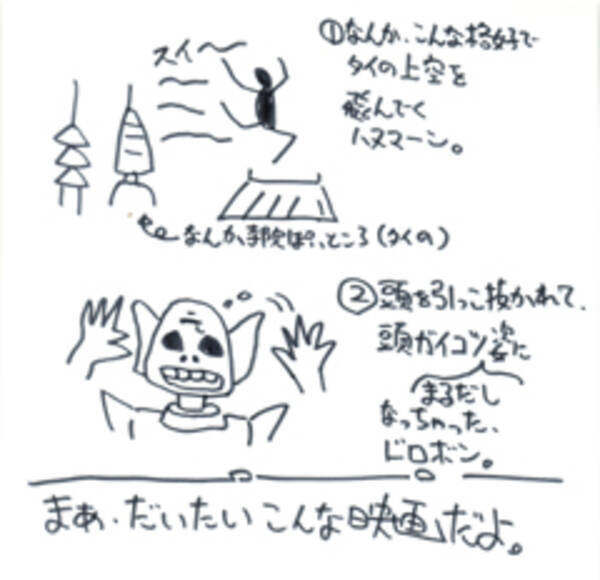 ①なんか、こんな格好で
タイの上空を
飛んでく
ハヌマーン。
スイ〜
なんか、寺院ぽいところ(タイの)
②頭を引っこ抜かれて、
頭ガイコツ姿に
まるだし
なっちゃった、
ドロボン。
まぁ、だいたいこんな映画だよ。